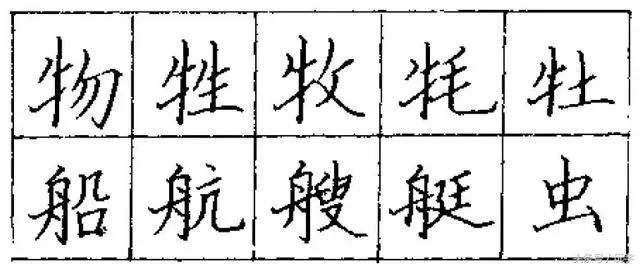 物牲牧牦牡
船航艘艇虫